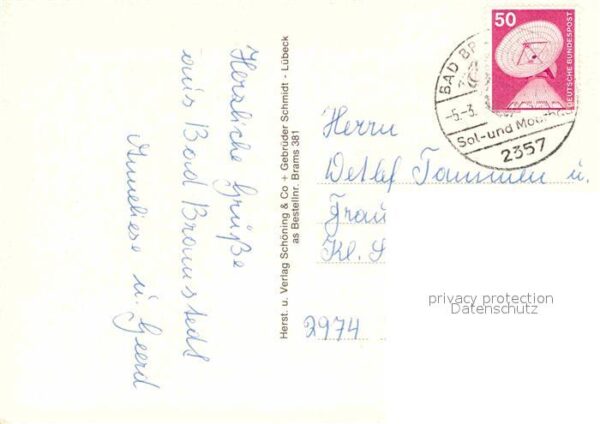 Herzliche Grüße
aus Bad Bramstedt
Anneliese u. Geerd
Herst. u. Verlag Schöning & Co + Gebrüder Schmidt - Lübeck
as Bestellnr. Brams 381
50
DEUTSCHE BUNDESPOST
BAD BR
-5.-3.
Sol-und Moorbad
2357
Herrn
Detlef Tammen u.
Frau
Kl. S
2974
privacy protection
Datenschutz